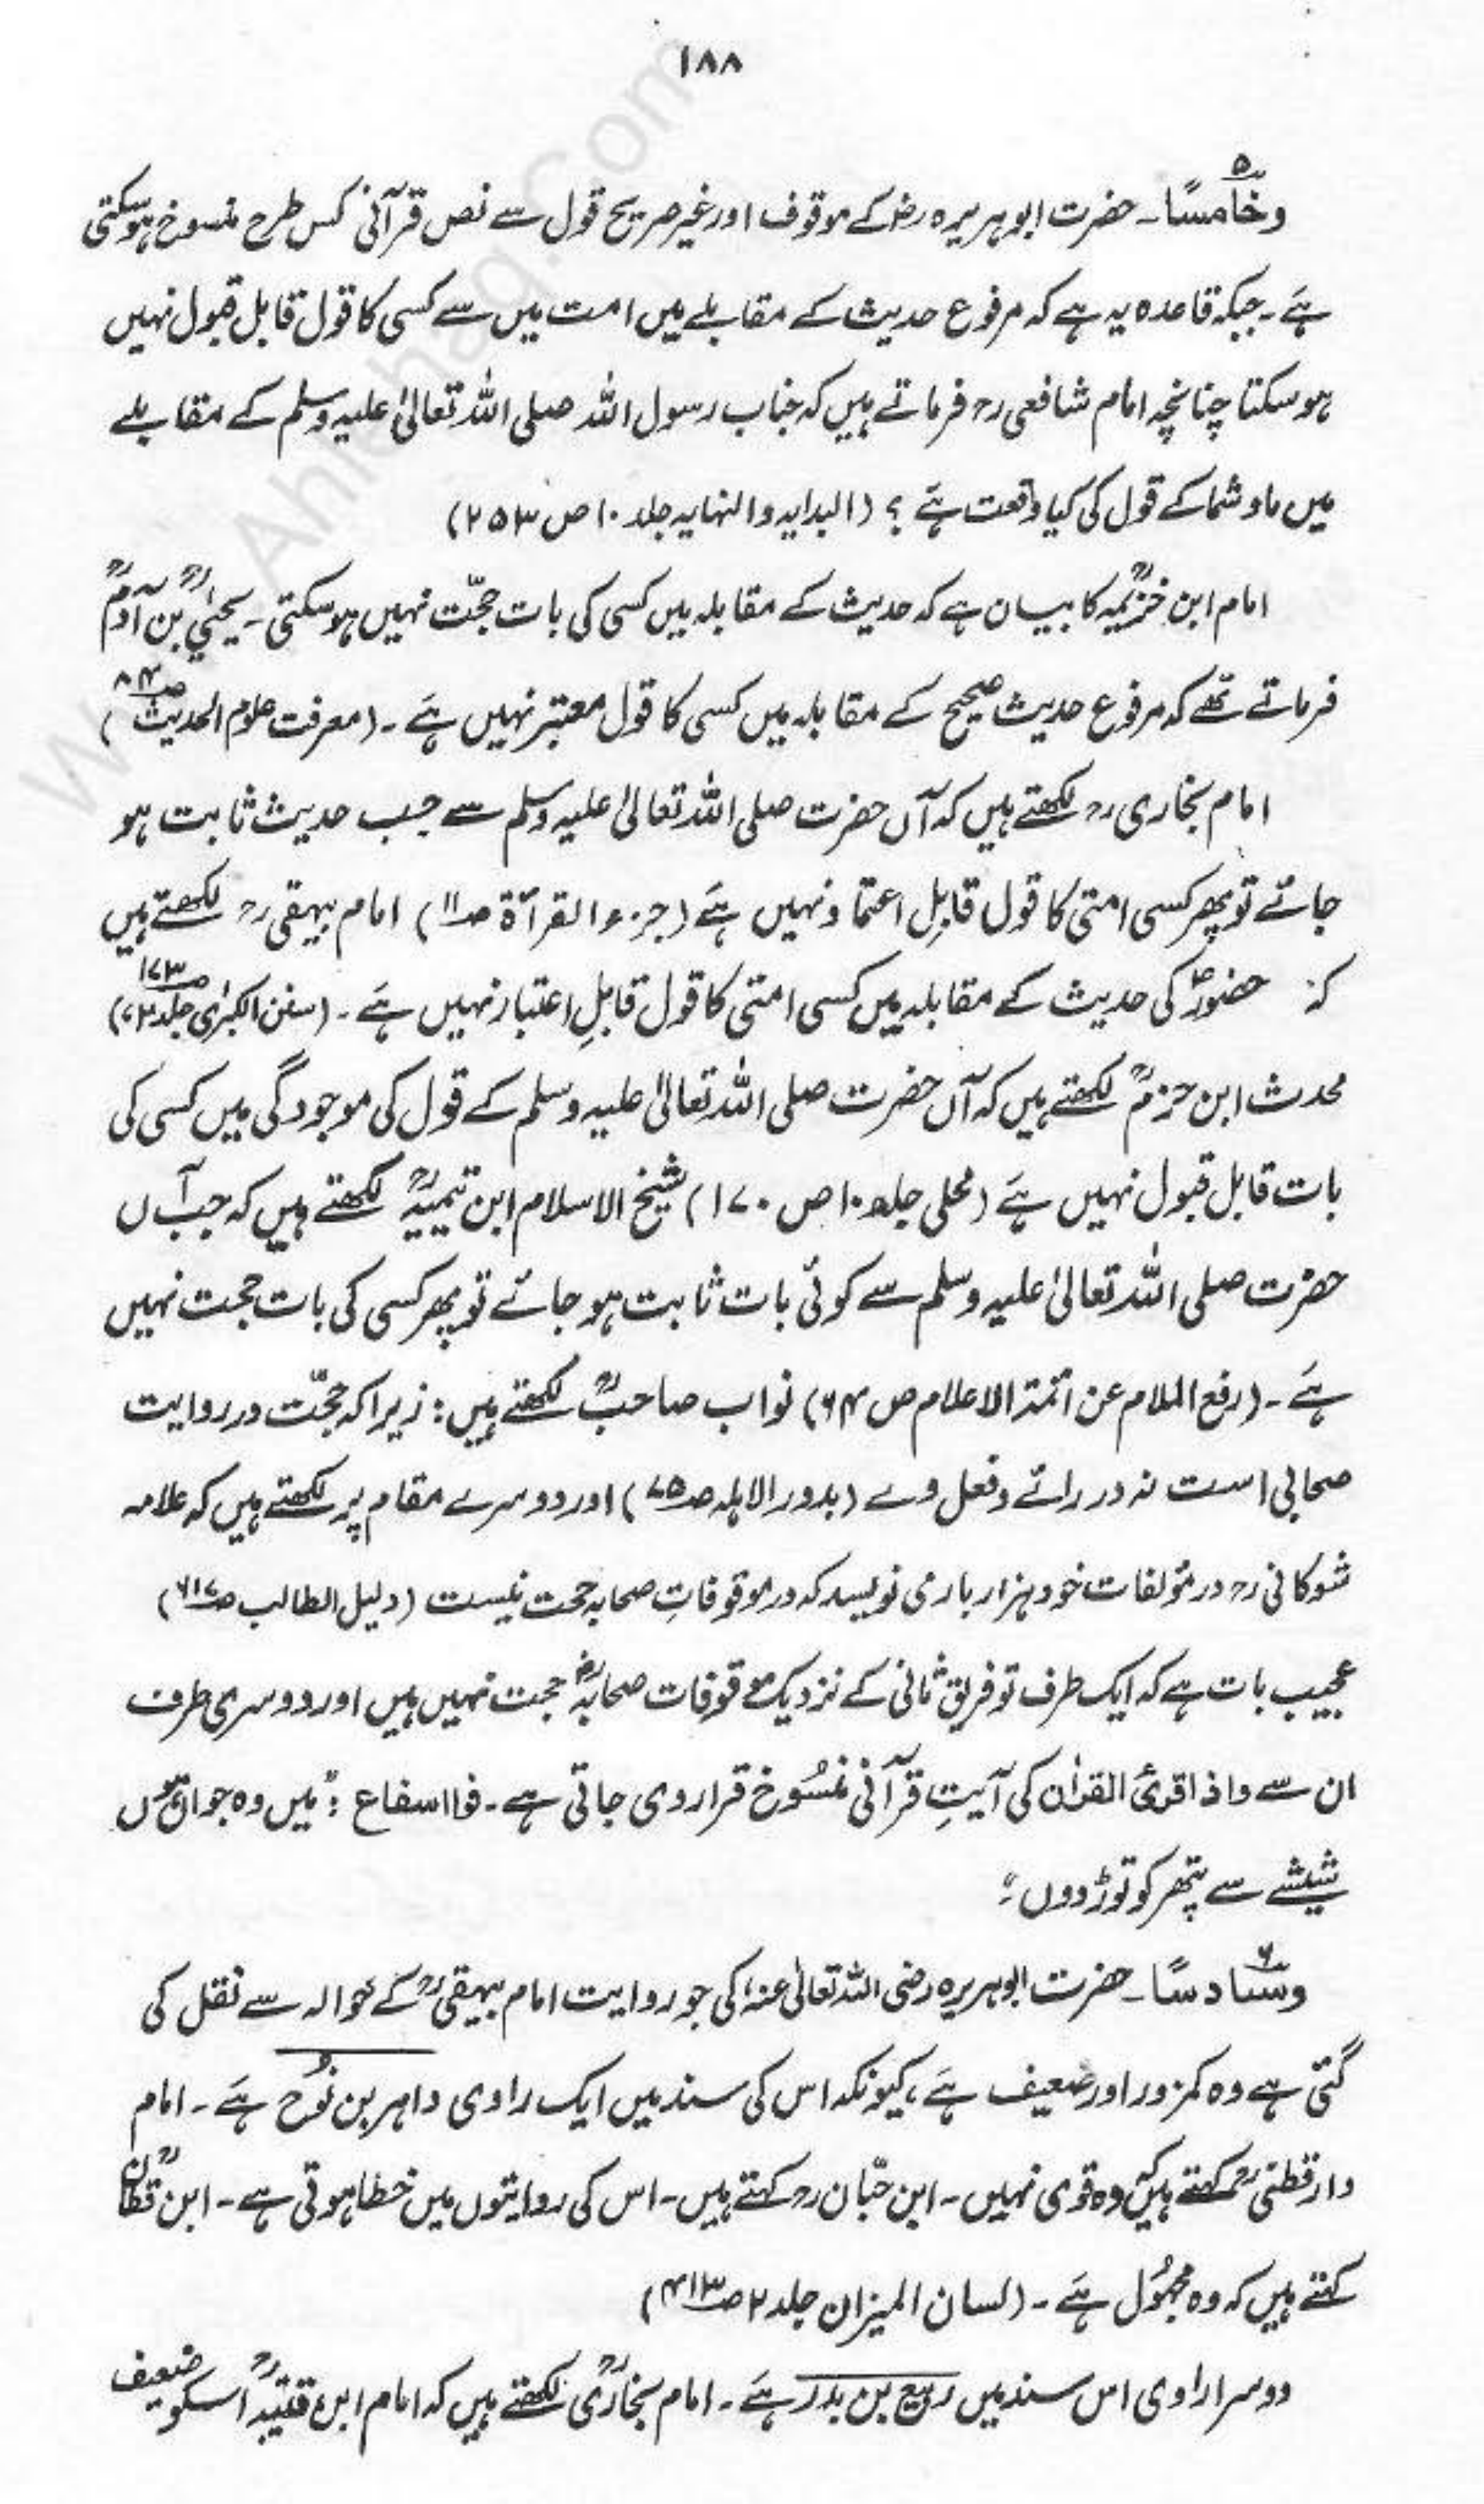 ۱۸۸
وخامسًا۔ حضرت ابوہریرہ رضؓ کے موقوف اور غیر صریح قول سے نص قرآنی کس طرح منسوخ ہوسکتی
ہے۔ جبکہ قاعدہ یہ ہے کہ مرفوع حدیث کے مقابلے میں امت میں سے کسی کا قول قابل قبول نہیں
ہوسکتا چنانچہ امام شافعی رح فرماتے ہیں کہ جناب رسول اللہ صلی اللہ تعالیٰ علیہ وسلم کے مقابلے
میں ماوشما کے قول کی کیا وقعت ہے؟ (البدایہ والنہایہ جلد ۱۰ ص ۲۵۳)
امام ابن خزیمہؒ کا بیان ہے کہ حدیث کے مقابلہ میں کسی کی بات حجّت نہیں ہوسکتی۔ یحییٰؒ بن آدمؒ
فرماتے تھے کہ مرفوع حدیث صحیح کے مقابلہ میں کسی کا قول معتبر نہیں ہے۔ (معرفت علوم الحدیث ص۸۴)
امام بخاری رح لکھتے ہیں کہ آں حضرت صلی اللہ تعالیٰ علیہ وسلم سے جب حدیث ثابت ہو
جائے تو پھر کسی امتی کا قول قابلِ اعتماد نہیں ہے (جزء القرآۃ ص۱۱) امام بیہقی رح لکھتے ہیں
کہ حضورؐ کی حدیث کے مقابلہ میں کسی امتی کا قول قابلِ اعتبار نہیں ہے۔ (سنن الکبریٰ جلد ۲، ص۱۷۳)
محدث ابن حزمؒ لکھتے ہیں کہ آں حضرت صلی اللہ تعالیٰ علیہ وسلم کے قول کی موجودگی میں کسی کی
بات قابل قبول نہیں ہے (محلی جلد ۱۰ ص ۱۷۰) شیخ الاسلام ابن تیمیہؒ لکھتے ہیں کہ جب آں
حضرت صلی اللہ تعالیٰ علیہ وسلم سے کوئی بات ثابت ہو جائے تو پھر کسی کی بات حجت نہیں
ہے۔ (رفع الملام عن ائمۃ الاعلام ص ۶۴) نواب صاحبؒ لکھتے ہیں: زیراکہ حجّت در روایت
صحابی است نہ در رائے وفعل وے (بدور الاہلہ ص۷۵) اور دوسرے مقام پر لکھتے ہیں کہ علامہ
شوکانی رح در مؤلفات خود ہزار بار می نویسد کہ در موقوفاتِ صحابہ حجت نیست (دلیل الطالب ص۶۱۷)
عجیب بات ہے کہ ایک طرف تو فریق ثانی کے نزدیک موقوفات صحابہؓ حجت نہیں ہیں اور دوسری طرف
ان سے واذا قرئ القرآن کی آیتِ قرآنی منسُوخ قرار دی جاتی ہے۔ فوااسفاع: میں وہ جو
شیشے سے پتھر کو توڑ دوں؛
وسادسًا۔ حضرت ابوہریرہ رضی اللہ تعالیٰ عنہ کی جو روایت امام بیہقیؒ کے حوالہ سے نقل کی
گئی ہے وہ کمزور اور ضعیف ہے، کیونکہ اس کی سند میں ایک راوی داہر بن نُوح ہے۔ امام
دارقطنیؒ کہتے ہیں کہ وہ قوی نہیں۔ ابن حبّان رح کہتے ہیں۔ اس کی روایتوں میں خطا ہوتی ہے۔ ابن قطانؒ
کہتے ہیں کہ وہ مجہُول ہے۔ (لسان المیزان جلد ۲ ص۴۱۳)
دوسرا راوی اس سند میں ربیع بن بدر ہے۔ امام بخاریؒ لکھتے ہیں کہ امام ابن قتیبہؒ اسکو ضعیف